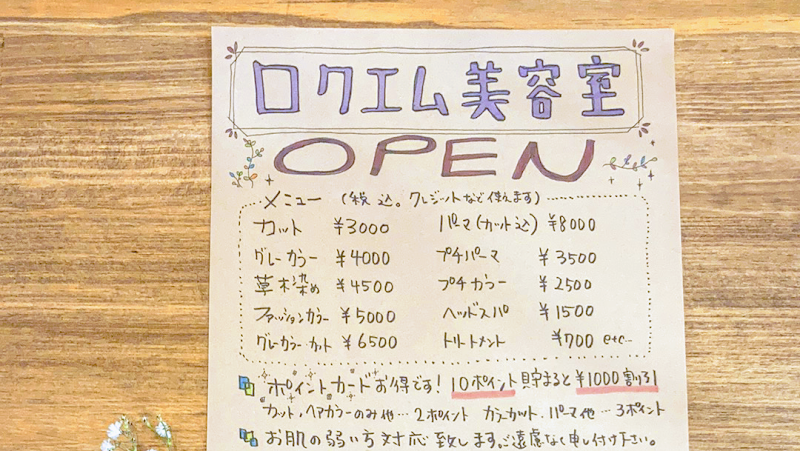 ロクエム美容室
OPEN
メニュー (税込。クレジットなど使えます)
カット ¥3000 パーマ(カット込) ¥8000
グレーカラー ¥4000 プチパーマ ¥3500
草木染め ¥4500 プチカラー ¥2500
ファッションカラー ¥5000 ヘッドスパ ¥1500
グレーカラーカット ¥6500 トリートメント ¥700 etc…
ポイントカードお得です! 10ポイント貯まると¥1000割引!
カット、ヘアカラーのみ他…2ポイント カラーカット、パーマ他…3ポイント
お肌の弱い方対応致します。ご遠慮なく申し付け下さい。